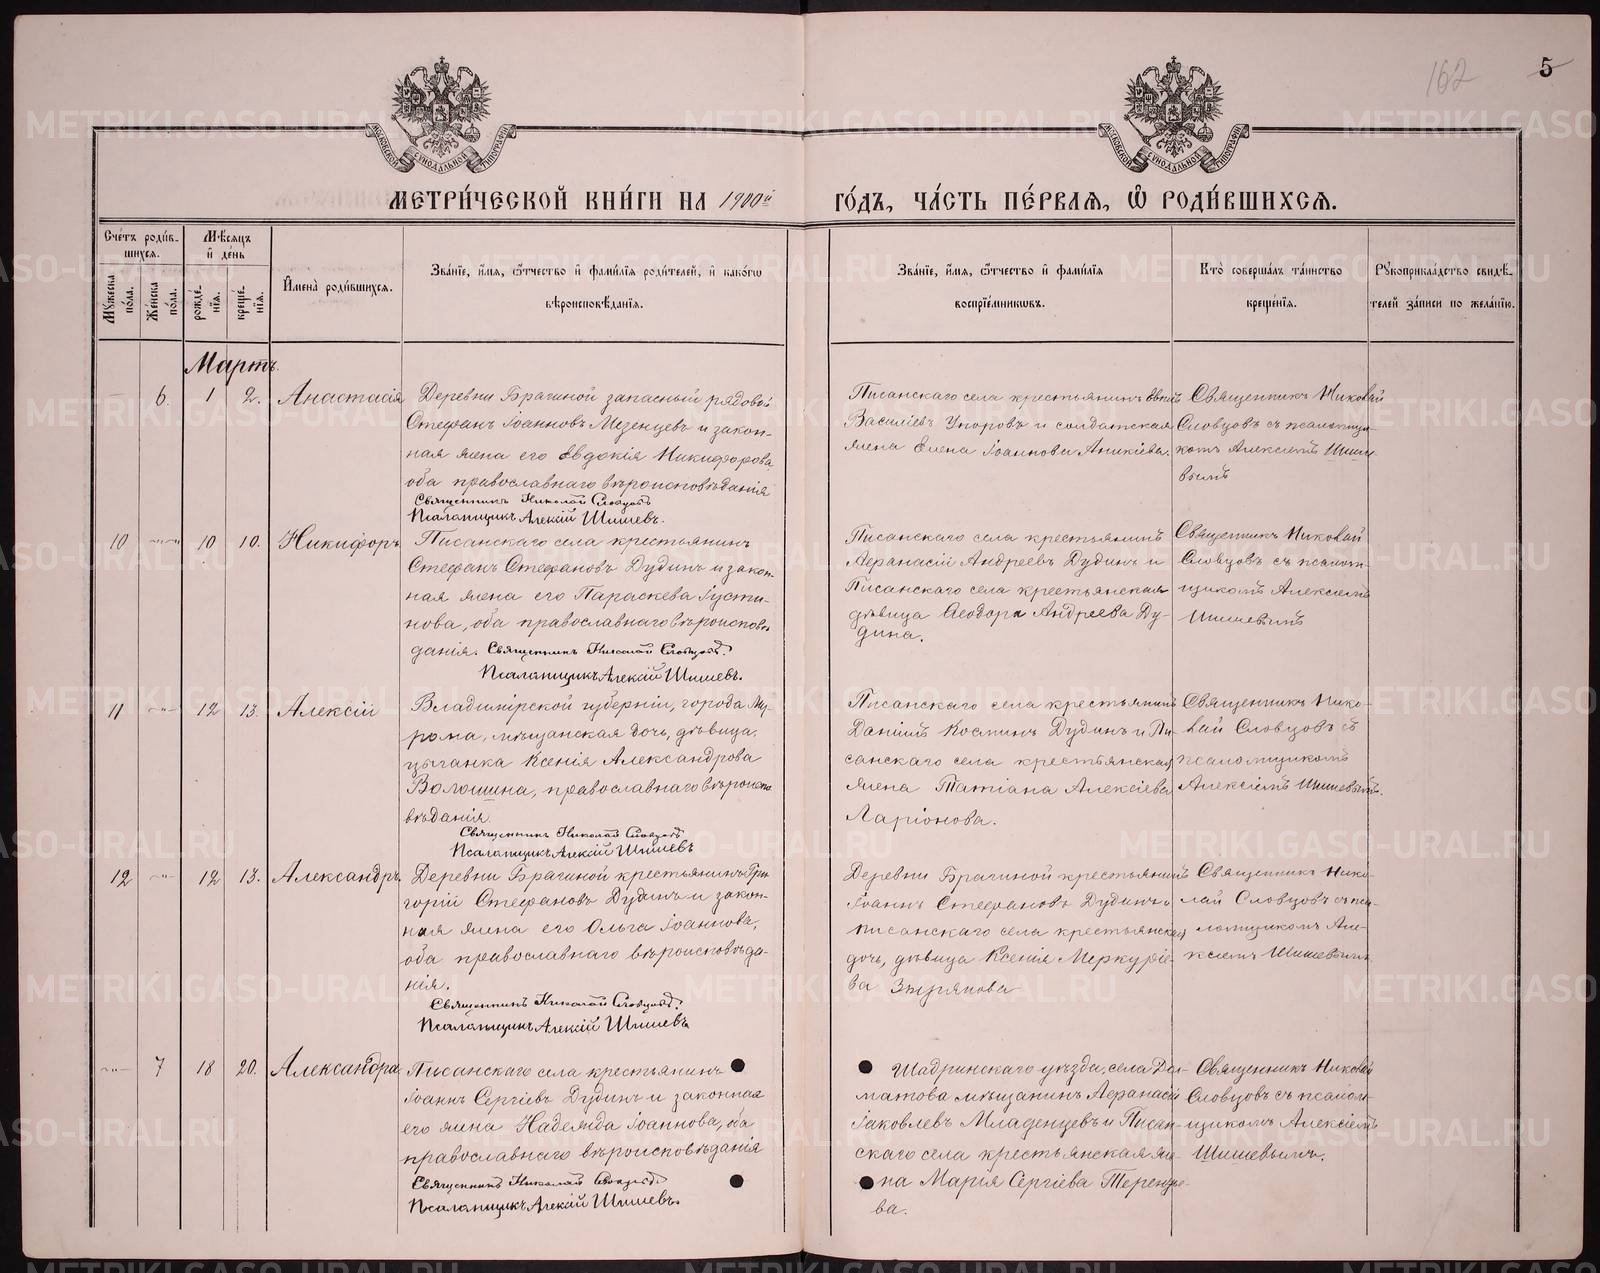 162
5
МЕТРИ́ЧЕСКОЙ КНИ́ГИ НА 1900й
ГО́ДЪ, ЧА́СТЬ ПЕ́РВАѦ, Ѡ҆ РОДИ́ВШИХСѦ.
Сче́тъ роди́в-
шихсѧ.
Мѣ́сѧцъ
и҆ де́нь
Мꙋ́жеска по́ла.
Же́нска по́ла.
рожде́нїѧ.
креще́нїѧ.
И҆мена̀ роди́вшихсѧ.
Зва́нїе, и҆́мѧ, ѻ҆́тчество и҆ фами́лїѧ роди́телей, и҆ како́гѡ
вѣроисповѣ́данїѧ.
Зва́нїе, и҆́мѧ, ѻ҆́тчество и҆ фами́лїѧ
воспрїе́мникѡвъ.
Кто̀ соверша́лъ та́инство
креще́нїѧ.
Рꙋкоприкла́дство свидѣ́-
телей за́писи по жела́нїю.
Мартъ.
6. 1 2. Анастасія
Деревни Брагиной запасный рядовой
Стефанъ Іоанновъ Мезенцевъ и закон-
ная жена его Евдокія Никифорова,
оба православнаго вѣроисповѣданія
Священникъ Николай Словцовъ
Псаломщикъ Алексій Шишевъ.
Писанскаго села крестьянинъ
Василіевъ Упоровъ и солдатская
жена Елена Іоаннова Аникіева.
Священникъ Николай
Словцовъ съ псаломщи-
комъ Алексіемъ Шише-
вымъ
10 10 10. Никифоръ
Писанскаго села крестьянинъ
Стефанъ Стефановъ Дудинъ и закон-
ная жена его Параскева Іусти-
нова, оба православнаго вѣроисповѣ-
данія. Священникъ Николай Словцовъ.
Псаломщикъ Алексій Шишевъ.
Писанскаго села крестьянинъ
Аѳанасій Андреевъ Дудинъ и
Писанскаго села крестьянская
дѣвица Ѳеодора Андреева Ду-
дина.
Священникъ Николай
Словцовъ съ псалом-
щикомъ Алексіемъ
Шишевымъ
11 12 13. Алексій
Владимірской губерніи, города Му-
рома, мѣщанская дочь, дѣвица,
цыганка Ксенія Александрова
Волошина, православнаго вѣроиспо-
вѣданія.
Священникъ Николай Словцовъ
Псаломщикъ Алексій Шишевъ
Писанскаго села крестьянинъ
Даніилъ Косминъ Дудинъ и Пи-
санскаго села крестьянская
жена Татіана Алексіева
Ларіонова.
Священникъ Нико-
лай Словцовъ съ
псаломщикомъ
Алексіемъ Шишевымъ.
12 12 13. Александръ
Деревни Брагиной крестьянинъ Гри-
горій Стефановъ Дудинъ и закон-
ная жена его Ольга Іоаннова,
оба православнаго вѣроисповѣда-
нія.
Священникъ Николай Словцовъ.
Псаломщикъ Алексій Шишевъ
Деревни Брагиной крестьянинъ
Іоаннъ Стефановъ Дудинъ и
писанскаго села крестьянская
дочь, дѣвица Ксенія Меркуріе-
ва Зырянова
Священникъ Нико-
лай Словцовъ съ пса-
ломщикомъ Але-
ксіемъ Шишевымъ
7 18 20. Александра
Писанскаго села крестьянинъ
Іоаннъ Сергіевъ Дудинъ и законная
его жена Надежда Іоаннова, оба
православнаго вѣроисповѣданія
Священникъ Николай Словцовъ.
Псаломщикъ Алексій Шишевъ.
Шадринскаго уѣзда, села Дал-
матова мѣщанинъ Аѳанасій
Іаковлевъ Младенцевъ и Писан-
скаго села крестьянская же-
на Марія Сергіева Терентье-
ва.
Священникъ Николай
Словцовъ съ псалом-
щикомъ Алексіемъ
Шишевымъ.